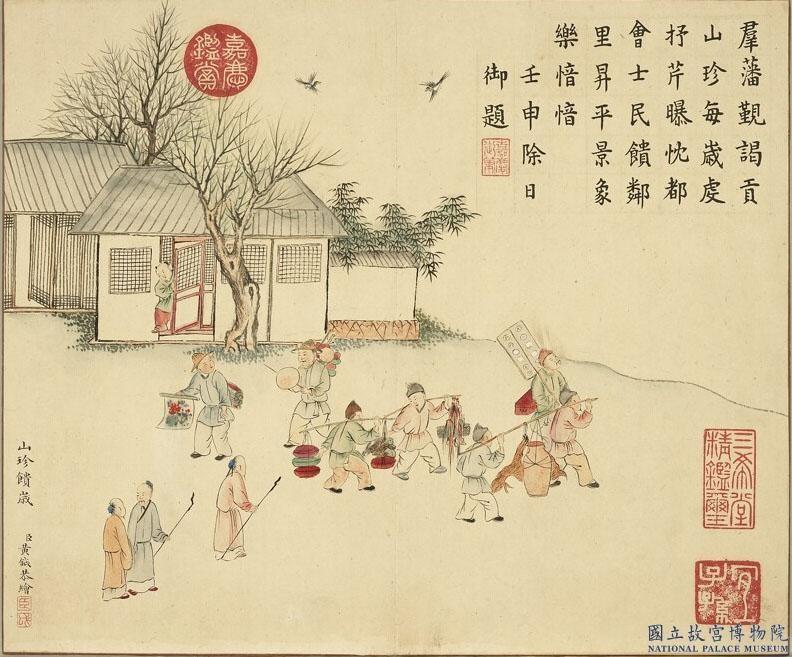 羣藩覲謁貢
山珍每歲虔
抒芹曝忱都
會士民饋鄰
里昇平景象
樂愔愔
壬申除日
御題
嘉慶鑑賞
三希堂精鑑璽
宜子孫
山珍饋歲
臣黃鉞恭繪
國立故宮博物院
NATIONAL PALACE MUSEUM